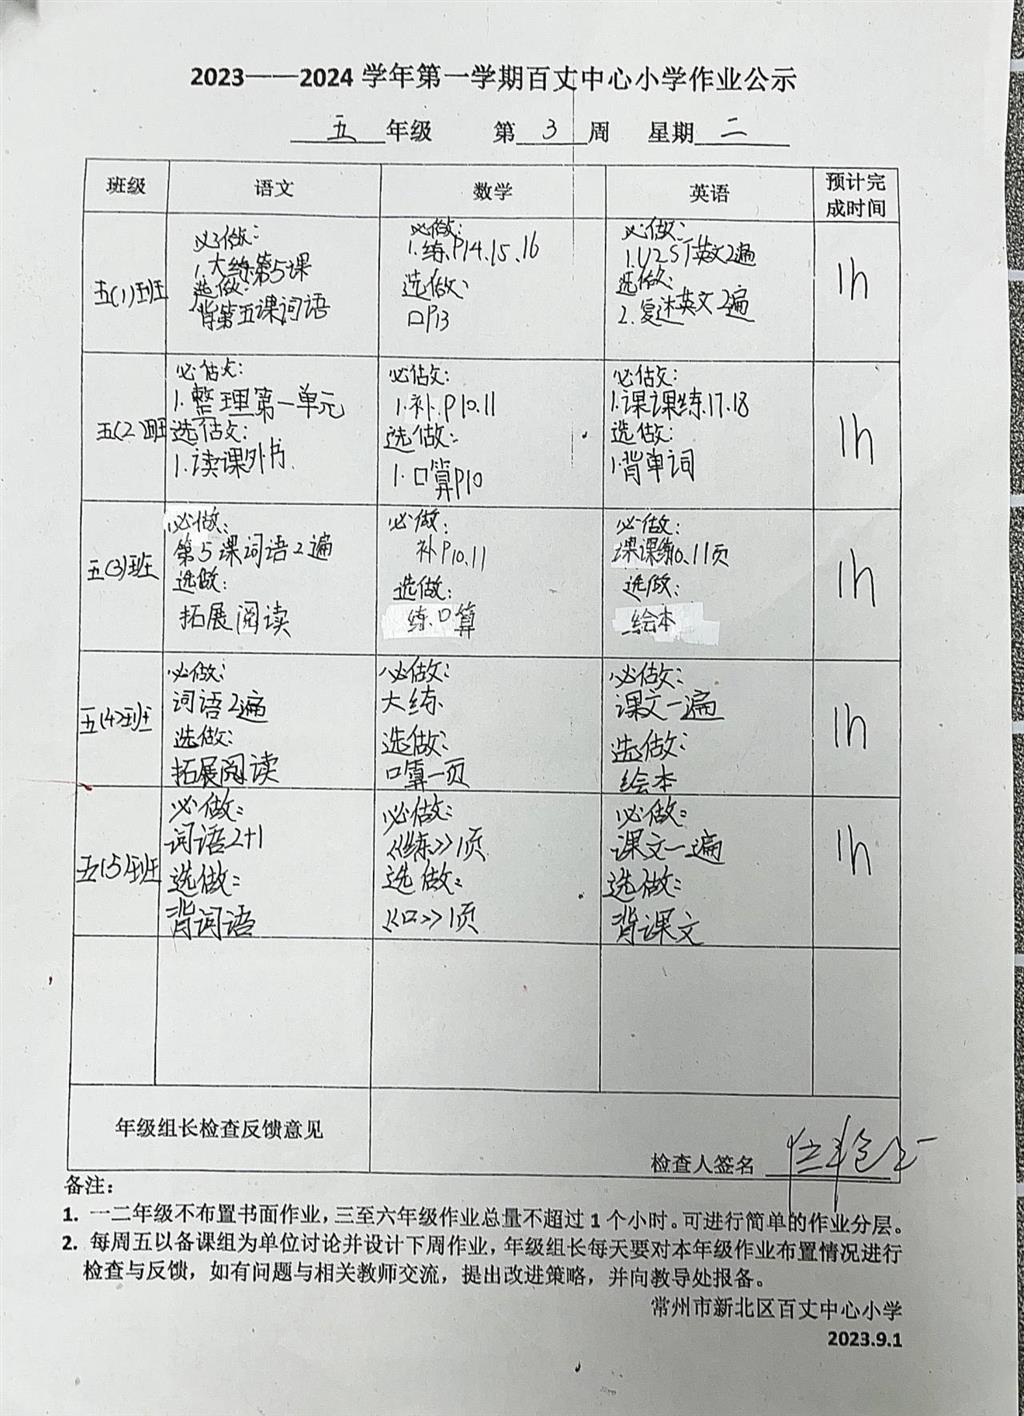 2023——2024 学年第一学期百丈中心小学作业公示
五 年级 第 3 周 星期 二
班级 语文 数学 英语 预计完成时间
五(1)班
必做:
1.大练第5课
选做:
背第五课词语
必做:
1.练P14.15.16
选做:
口P13
必做:
1.U2ST英文2遍
选做:
2.复述英文2遍
1h
五(2)班
必做:
1.整理第一单元
选做:
1.读课外书.
必做:
1.补.P10.11
选做:
1.口算P10
必做:
1.课课练.17.18
选做:
1.背单词
1h
五(3)班
必做:
第5课词语2遍
选做:
拓展阅读
必做:
补P10.11
选做:
练.口算
必做:
课课练10.11页
选做:
绘本
1h
五(4)班
必做:
词语2遍
选做:
拓展阅读
必做:
大练
选做:
口算一页
必做:
课文一遍
选做:
绘本
1h
五(5)班
必做:
词语2+1
选做:
背词语
必做:
《练》1页
选做:
《口》1页
必做:
课文一遍
选做:
背课文
1h
年级组长检查反馈意见
检查人签名
备注:
1. 一二年级不布置书面作业，三至六年级作业总量不超过 1 个小时。可进行简单的作业分层。
2. 每周五以备课组为单位讨论并设计下周作业，年级组长每天要对本年级作业布置情况进行
检查与反馈，如有问题与相关教师交流，提出改进策略，并向教导处报备。
常州市新北区百丈中心小学
2023.9.1